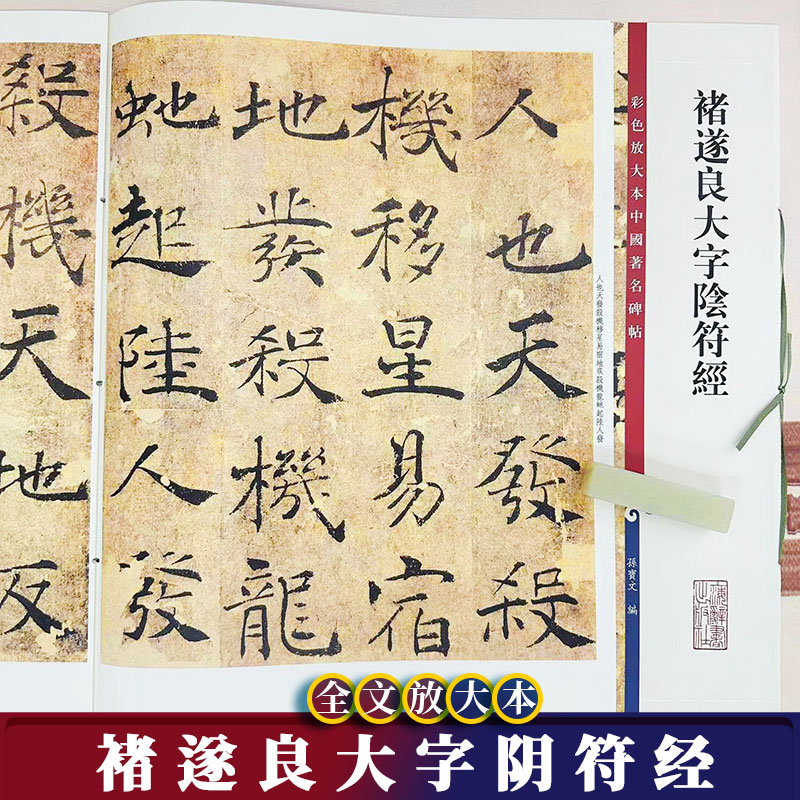 褚遂良大字陰符經
彩色放大本中國著名碑帖
孫寶文 編
人也天發殺
機移星易宿
地發殺機龍
虵起陸人發
殺機天地反
人也天發殺機移星易宿地發殺機龍虵起陸人發
全文放大本
褚遂良大字阴符经